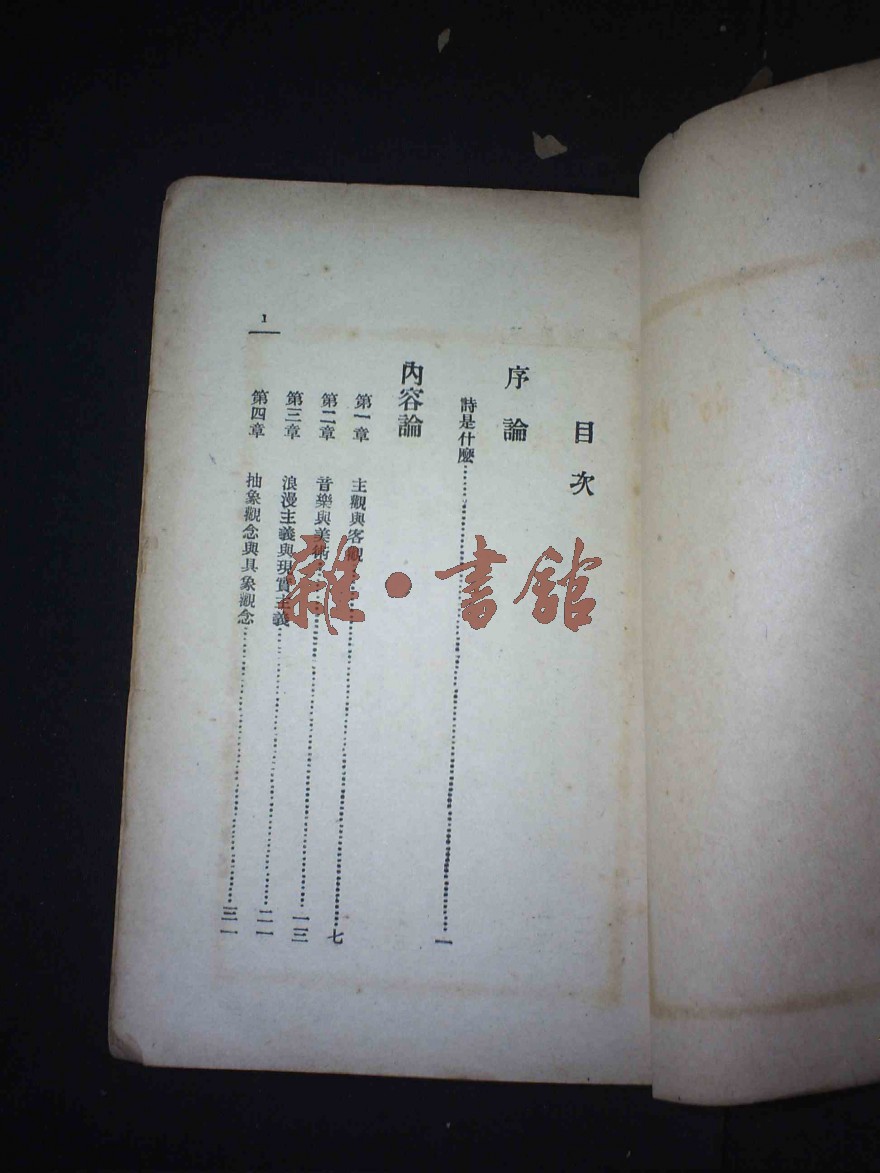 目次
序論
詩是什麼……一
內容論
第一章 主觀與客觀……七
第二章 音樂與美術……一三
第三章 浪漫主義與現實主義……二一
第四章 抽象觀念與具象觀念……三一
1
雜·書館